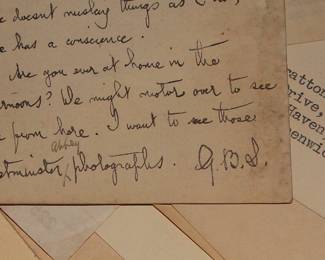 doesnt mislay things as
has a conscience.
Are you ever at home in the
? We might motor over to see
from here. I want to see those
Abbey
photographs. G.B.S.
atton
rive,
Haven
enwic